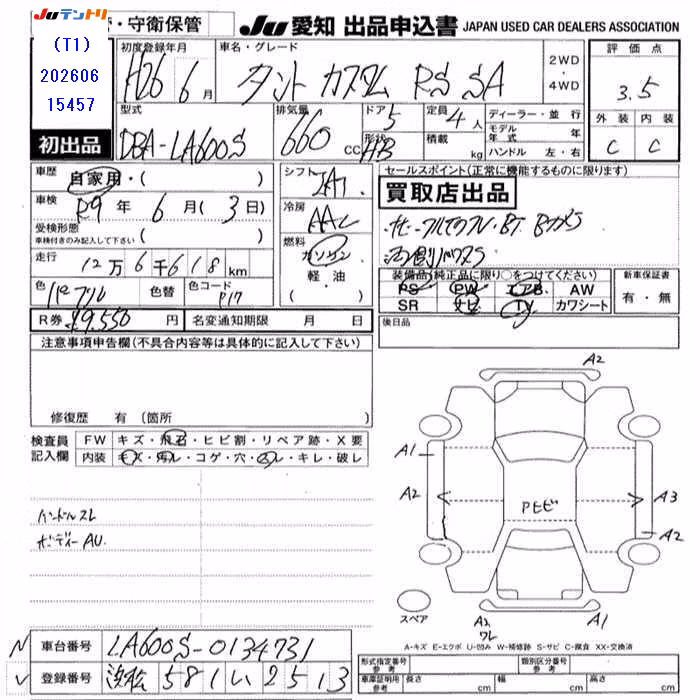 Juテントリ
(T1)
202606
15457
・守衛保管
初出品
Ju 愛知 出品申込書 JAPAN USED CAR DEALERS ASSOCIATION
初度登録年月 車名・グレード 2WD・4WD 評価点
H26 6月 タント カスタム RS SA 3.5
型式 排気量 ドア 定員 ディーラー・並行 外装 内装
DBA-LA600S 660 CC 5 4人 モデル年式 年 C C
形状 積載 kg ハンドル 左・右
HB
車歴 自家用・( )
車検 R9年 6月(3日)
受検形態 ( )
車検付きのみ記入して下さい
走行 12万6千618km
色 色替 色コード
P17
R券 ¥9,550円 名変通知期限 月 日
シフト
冷房 AAC
燃料 ガソリン
軽・油
( )
セールスポイント(正常に機能するものに限ります)
買取店出品
装備品(純正品に限り○をつけてください) 新車保証書
PS PW エアB AW 有・無
SR ナビ TV カワシート
後日品
注意事項申告欄(不具合内容等は具体的に記入して下さい)
修復歴 有 (箇所 )
検査員記入欄 FW キズ・飛石・ヒビ割・リペア跡・X要
内装 キズ・汚レ・コゲ・穴・スレ・キレ・破レ
ハンドルスレ
ボディー AU.
A2
A1
A2 A3
Pヒビ
A2
A2 ワレ A1
スペア
A-キズ E-エクボ U-凹み W-補修跡 S-サビ C-腐食 XX-交換済
車台番号 LA600S-0134731
登録番号 浜松 581 い 2513
形式指定番号 参考 類別区分番号 参考
車庫証明用 参考 長さ cm 幅 cm 高さ cm